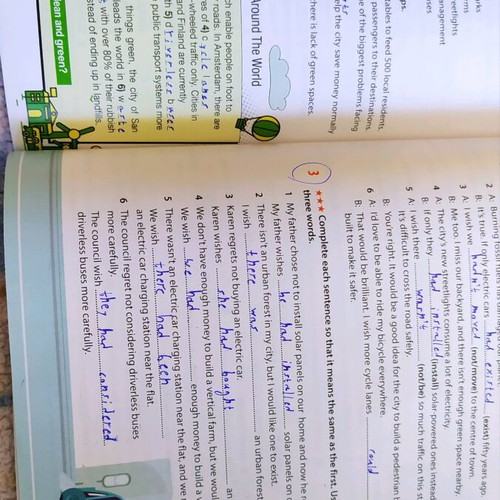 orks
rms
treetlights
anagement
uses
ps
tables to feed 500 local residents.
passengers to their destinations.
e of the biggest problems facing
elp the city save money normally
here is lack of green spaces.
Around The World
ch enable people on foot to
roads. In Amsterdam, there are
res of 4) cycle lanes
-wheeled traffic only. Cities in
and Finland are currently
th 5) driverless buses
public transport systems more
things green, the city of San
leads the world in 6) waste
with over 80% of their rubbish
stead of ending up in landfills.
ean and green?
B: It's true. If only electric cars had existed (exist) fifty years ago
3 A: I wish we hadn't moved (not/move) to the centre of town.
B: Me too. I miss our backyard, and there isn't enough green space nearby.
4 A: The city's new streetlights consume a lot of electricity.
B: If only they had installed (install) solar-powered ones instea
5 A: I wish there wasn't (not/be) so much traffic on this st
It's difficult to cross the road safely.
B: You're right. It would be a good idea for the city to build a pedestrian
6 A: I'd love to be able to ride my bicycle everywhere.
B: That would be brilliant. I wish more cycle lanes could
built to make it safer.
3 ★★★ Complete each sentence so that it means the same as the first. Us
three words.
1 My father chose not to install solar panels on our home and now he r
My father wishes he had installed solar panels on o
2 There isn't an urban forest in my city, but I would like one to exist.
I wish there was an urban forest
3 Karen regrets not buying an electric car.
Karen wishes she had bought an
4 We don't have enough money to build a vertical farm, but we woul
We wish we had enough money to build a v
5 There wasn't an electric car charging station near the flat, and we s
We wish there had been
an electric car charging station near the flat.
6 The council regret not considering driverless buses
more carefully.
The council wish they had considered
driverless buses more carefully.